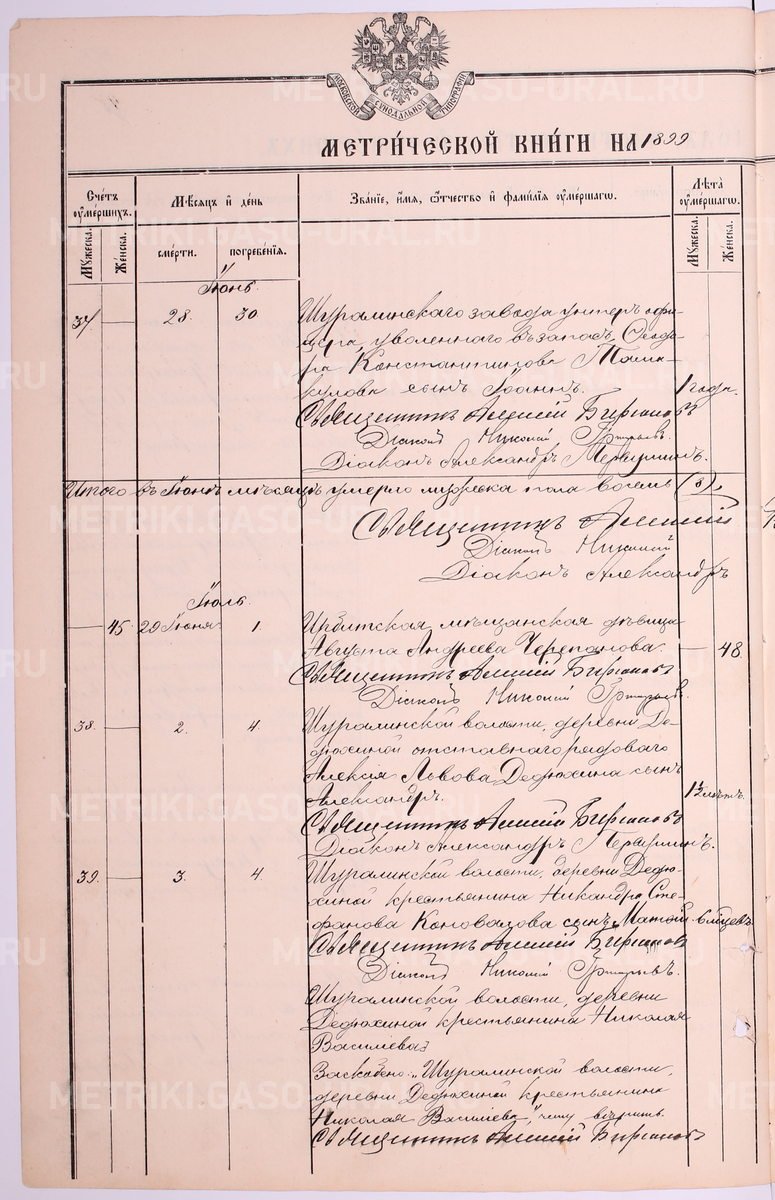 МОСКОВСКОЙ СѴНОДАЛЬНОЙ ТИПОГРАФІИ
МЕТРИ́ЧЕСКОЙ КНИ́ГИ НА 1899
Сче́тъ ᲂуме́ршихъ. Мѣ́сяцъ и҆ де́нь Зва́нїе, и҆́мя, ѻ҆́тчество и҆ фами́лїя ᲂуме́ршагѡ. Лѣ́та ᲂуме́ршагѡ.
Му́жеска. Же́нска. сме́рти. погребе́нїя. Му́жеска. Же́нска.
Іюнь.
37 28. 30. Шуралинскаго завода унтеръ офи-
цера, уволеннаго въ запасъ, Ѳеодо-
ра Константинова Толма-
кулова сынъ Іоаннъ. 1 года.
Священникъ Алексій Бирюковъ
Діаконъ Николай
Діаконъ Александръ
Итого въ Іюнѣ мѣсяцѣ умерло мужеска пола восемь (8),
Священникъ Алексій
Діаконъ Николай
Діаконъ Александръ
Іюль.
45. 29 Іюня 1. Ирбитская мѣщанская дѣвица
Августа Андреева Черепанова. 48.
Священникъ Алексій Бирюковъ
Діаконъ Николай
38. 2. 4. Шуралинской волости, деревни Де-
дюхиной отставнаго рядоваго
Алексія Львова Дедюхина сынъ
Александръ. 1½ лѣтъ.
Священникъ Алексій Бирюковъ
Діаконъ Александръ
39. 3. 4. Шуралинской волости, деревни Дедю-
хиной крестьянина Никандра Сте-
фанова Коновалова сынъ Матѳій. 6 мѣсцевъ
Священникъ Алексій Бирюковъ
Діаконъ Николай
Шуралинской волости, деревни
Дедюхиной крестьянина Николая
Василева
Заскоблено: "Шуралинской волости,
деревни Дедюхиной крестьянина
Николая Василева", чему вѣрить.
Священникъ Алексій Бирюковъ
METRIKI.GASO-URAL.RU